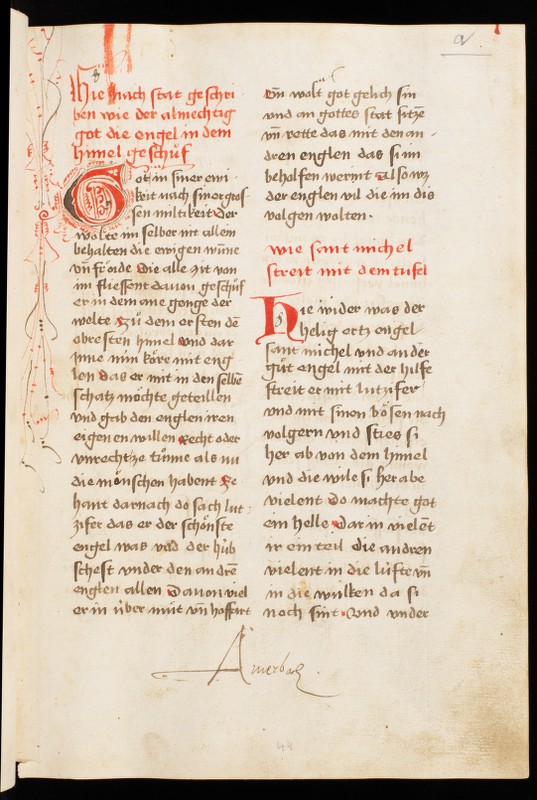 a
Hie nach stat geschri-
ben wie der almechtig
got die engel in dem
himel geschůf
Got in siner ewi-
keit nach siner gros-
sen miltkeit Der
wolte im selber nit allein
behalten die ewigen wu̅ne
vn̅ fröide Die alle zit von
im fliessent dauon geschůf
er in dem ane genge der
welte Zů dem ersten de̅
obresten himel Vnd dar
inne nün köre mit eng-
len Das er mit in den selbe̅
schatz möchte geteillen
vnd gab den englen iren
eigenen willen Recht oder
vnrecht ze tůnne als nu
die mönschen habent Ze
hant darnach do sach lut-
zifer das er der schönste
engel was vnd der hüb
schest vnder den andre̅
englen allen Dauon viel
er in über můt vn̅ hoffart
vn̅ wolt got gelich sin
vnd an gottes stat sitze̅
vn̅ rette das mit den an-
dren englen das si im
beholfen werint Also wz
der englen vil die im dis
volgen wolten.
wie sant michel
streit mit dem tüfel
Hie wider was der
helig ertz engel
sant michel vnd ander
gůt engel mit der hilfe
streit er mit lutzifer
vnd mit sinen bösen nach
volgern vnd sties si
her ab von dem himel
vnd die wile si her abe
vielent Do machte got
ein helle Dar in viele̅t
ir ein teil die andren
vielent in die lüfte vn̅
in die wulken da si
noch sint. Vnd vnder
Auerbach
48